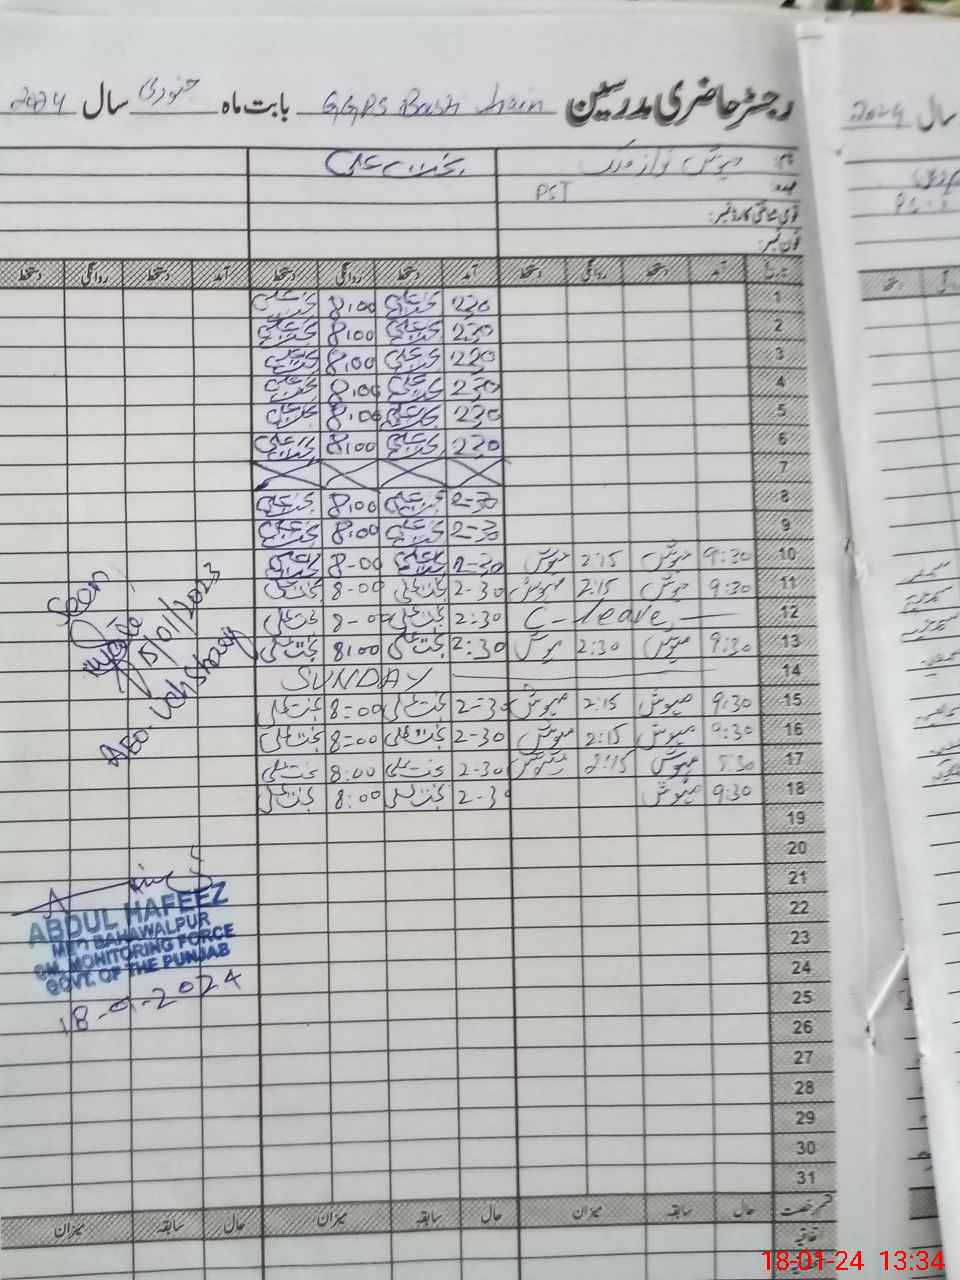 رجسٹر حاضری مدرسین GGPS Basti Jhain بابت ماہ جنوری سال 2024
نام: مہوش نواز ملک بخت علی
عہدہ: PST
قومی شناختی کارڈ نمبر:
فون نمبر:
تاریخ آمد دستخط روانگی دستخط آمد دستخط روانگی دستخط آمد دستخط روانگی دستخط
1 230 بخت علی 8:00 بخت علی
2 230 بخت علی 8:00 بخت علی
3 220 بخت علی 8:00 بخت علی
4 230 بخت علی 8:00 بخت علی
5 230 بخت علی 8:00 بخت علی
6 230 بخت علی 8:00 بخت علی
7
8 2-30 بخت علی 8:00 بخت علی
9 2-30 بخت علی 8:00 بخت علی
10 9:30 مہوش 2:15 مہوش 2-30 بخت علی 8-00 بخت علی
11 9:30 مہوش 2:15 مہوش 2-30 بخت علی 8-00 بخت علی
12 C-leave 2:30 بخت علی 8-00 بخت علی
13 9:30 مہوش 2:30 مہوش 2:30 بخت علی 8:00 بخت علی
14 SUNDAY
15 9:30 مہوش 2:15 مہوش 2-30 بخت علی 8=00 بخت علی
16 9:30 مہوش 2:15 مہوش 2-30 بخت علی 8=00 بخت علی
17 مہوش 2:15 مہوش 2-30 بخت علی 8:00 بخت علی
18 9:30 مہوش 2-30 بخت علی 8:00 بخت علی
19
20
21
22
23
24
25
26
27
28
29
30
31
Seen
15/01/2023
AEO. Uch Sharif
ABDUL HAFEEZ
MEO BAHAWALPUR
CM. MONITORING FORCE
GOVT. OF THE PUNJAB
18-01-2024
قسم رخصت حال سابقہ میزان حال سابقہ میزان حال سابقہ میزان
اتفاقیہ
سال 2024
18-01-24 13:34